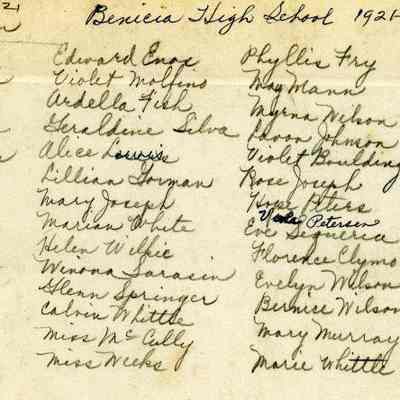 Benicia High School 1921
Edward Enos
Violet Molfino
Ardella Fish
Geraldine Silva
Alice Lewis
Lillian Gorman
Mary Joseph
Marian White
Helen Wilkie
Winona Sarasin
Glenn Springer
Calvin Whittle
Miss McCully
Miss Weeks
Phyllis Fry
May Mann
Myrna Wilson
Johnson
Violet Boulding
Rose Joseph
Hope Peters
Viola Petersen
Eve Sequeria
Florence Clymo
Evelyn Wilson
Bernice Wilson
Mary Murray
Marie Whittle